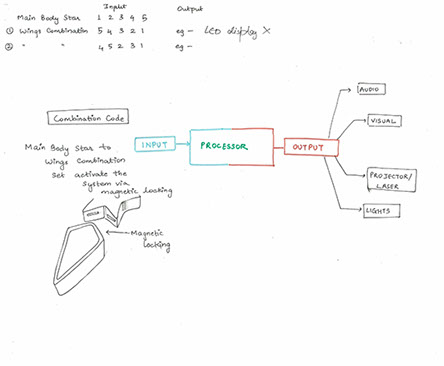 Input Output
Main Body Star 1 2 3 4 5
① Wings Combination 5 4 3 2 1 eg - LED display X
② " " 4 5 2 3 1 eg -
Combination Code
Main Body Star to
Wings Combination
set activate the
system via
magnetic locking
Magnetic
Locking
INPUT
PROCESSOR
OUTPUT
AUDIO
VISUAL
PROJECTOR/
LASER
LIGHTS